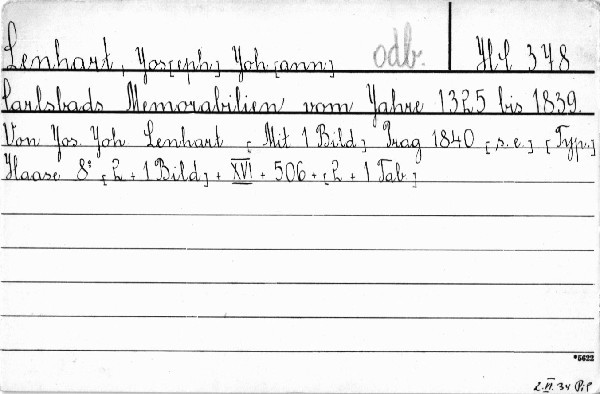 Lenhart, Jos[eph] Joh[ann] odb. H.f. 378
Carlsbads Memorabilien vom Jahre 1325 bis 1839.
Von Jos. Joh Lenhart [Mit 1 Bild] Prag 1840 [s.e.] [Typ.]
Haase 8° [2 + 1 Bild] + XVI + 506 + [2 + 1 Tab.]
*5622
2.VI.34